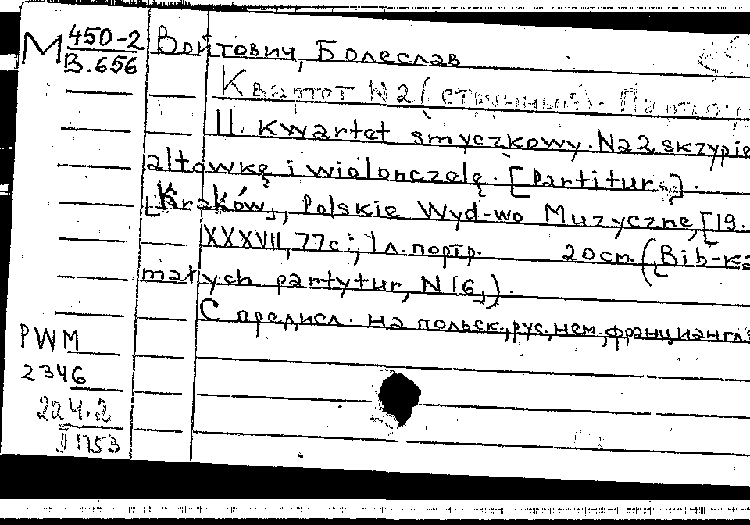 М 450-2
В.656
Войтович, Болеслав
Квартет N2 (струнный). Партитура
II. Kwartet smyczkowy. Na 2 skrzypie
altówkę i wiolonczelę. [Partitura].
[Kraków], Polskie Wyd-wo Muzyczne, [19
XXXVII, 77с.; 1л. портр. 20cm. (Bib-ka
małych partytur, N16,).
С предисл. на польск., рус., нем., франц. и англ. яз
PWM
2346
224.2
II 1753